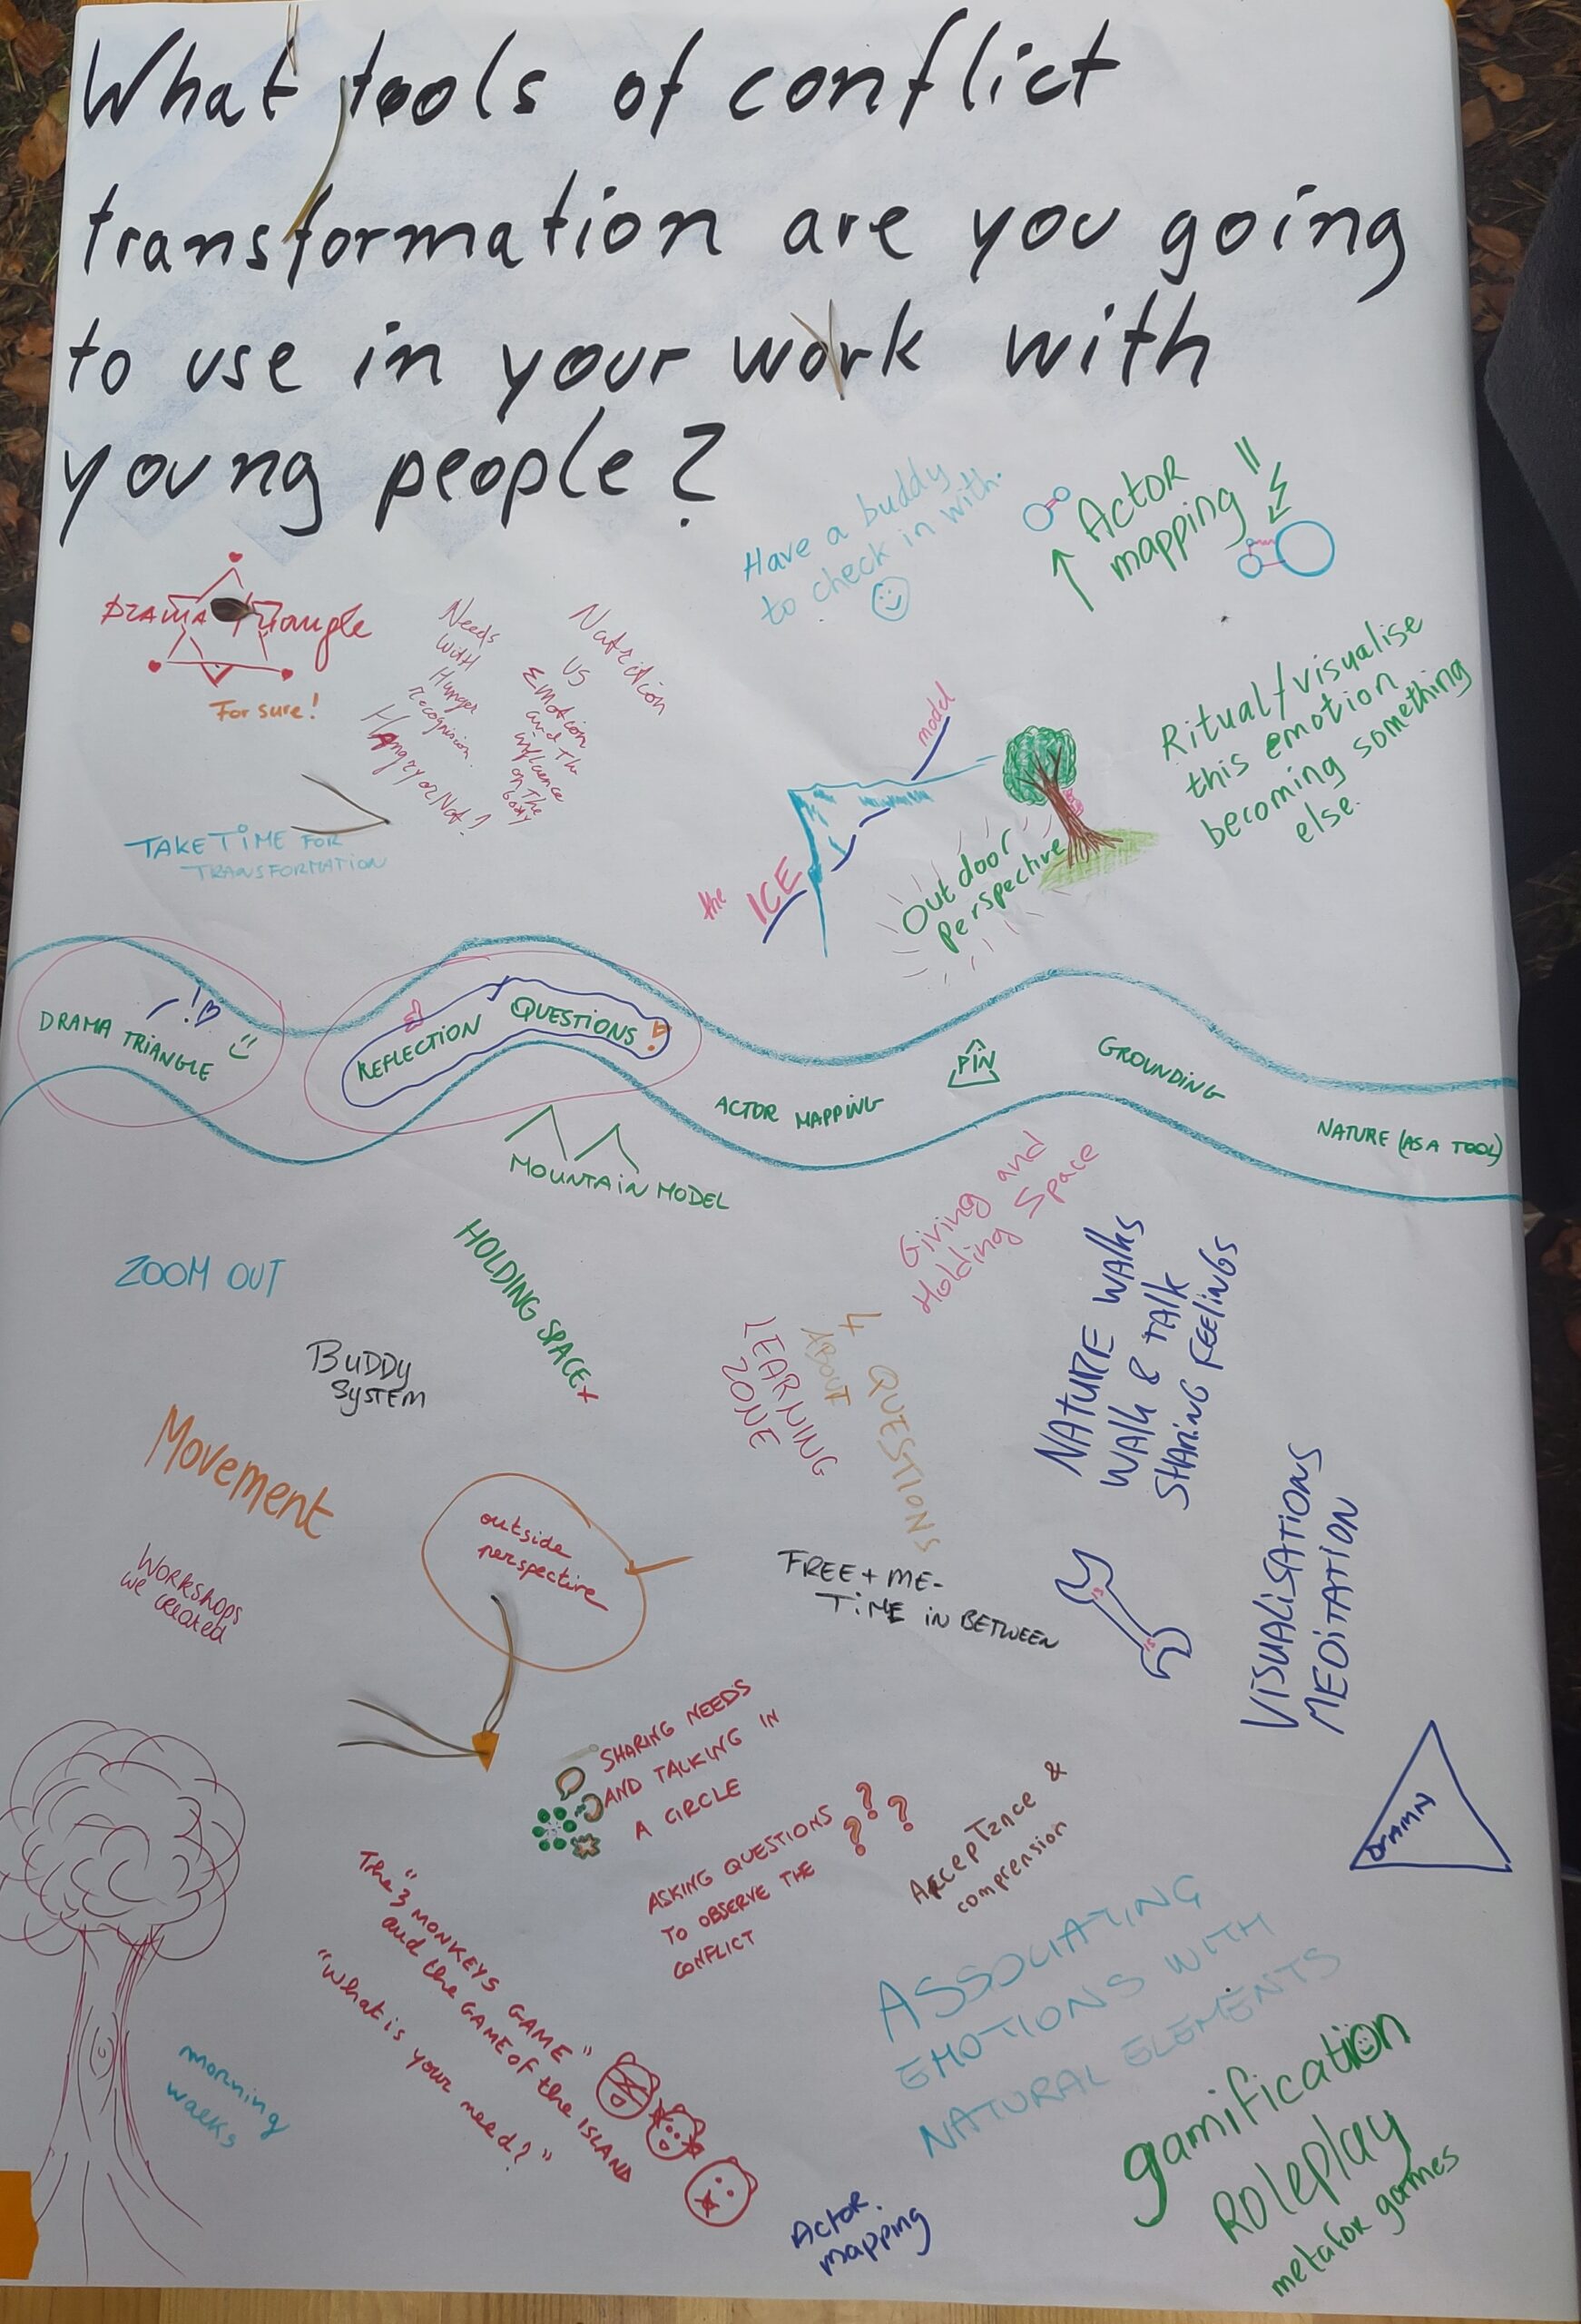 What tools of conflict
transformation are you going
to use in your work with
young people?
Have a buddy
to check in with.
Actor
mapping !!
DRAMA Triangle
For sure!
Needs
With
Hunger
recognision.
Hangry or Not?
Nutrition
US
Emotion
and The
influence
on The
body
TAKE TIME FOR
TRANSFORMATION
the ICE model
Outdoor
perspective
Ritual/visualise
this emotion
becoming something
else.
DRAMA TRIANGLE
REFLECTION QUESTIONS !
ACTOR MAPPING
PIN
GROUNDING
NATURE (AS A TOOL)
MOUNTAIN MODEL
Giving and
Holding Space
ZOOM OUT
HOLDING SPACE+
BUDDY
SYSTEM
LEARNING
ZONE
4 QUESTIONS
ABOUT
NATURE WALKS
WALK & TALK
SHARING FEELINGS
Movement
outside
perspective
WORKSHOPS
we created
FREE + ME-
TIME IN BETWEEN
VISUALISATIONS
MEDITATION
SHARING NEEDS
AND TALKING IN
A CIRCLE
ASKING QUESTIONS ???
TO OBSERVE THE
CONFLICT
Acceptance &
comprension
DRAMA
The "3 MONKEYS GAME"
and the GAME of the ISLAND
"What is your need?"
ASSOCIATING
EMOTIONS WITH
NATURAL ELEMENTS
morning
walks
gamification
Roleplay
metafor games
Actor.
mapping